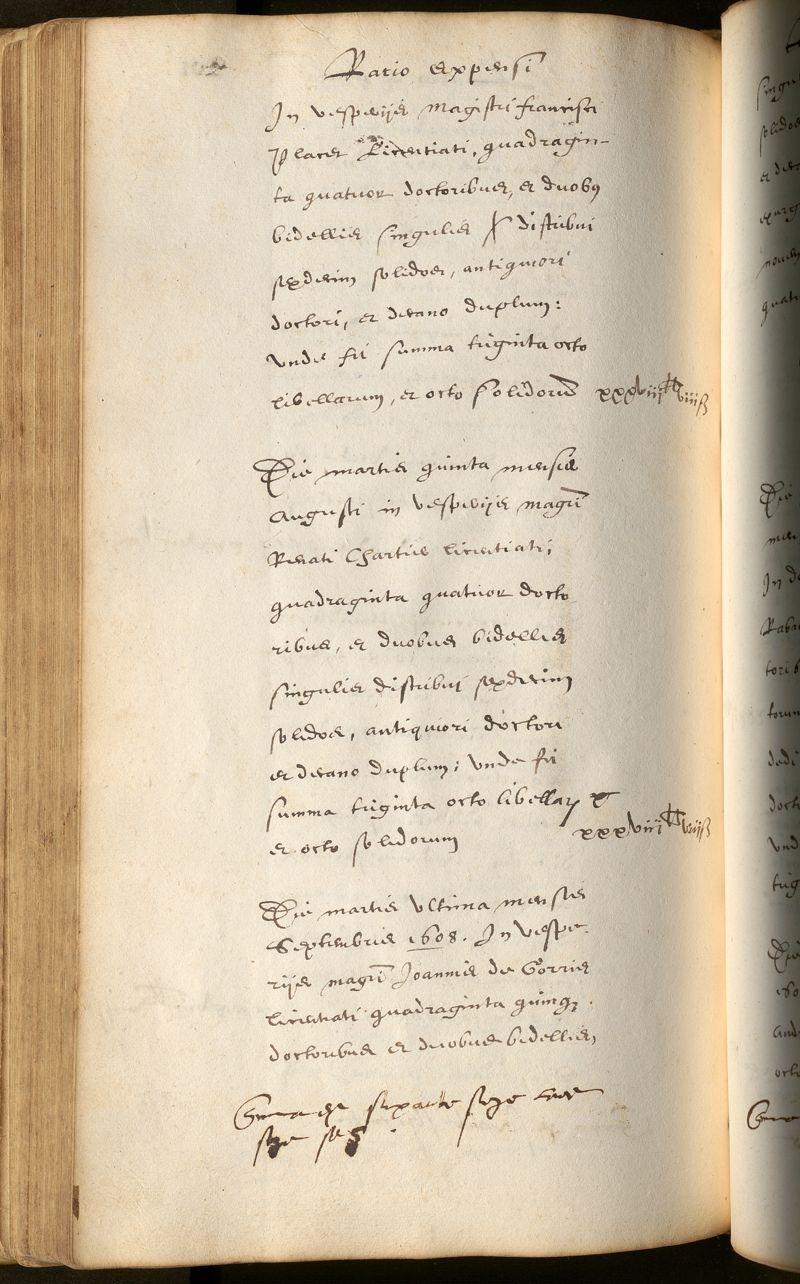 Ratio expensi
In vesperijs magistri francisci
Placet Licentiati, quadragin-
ta quatuor doctoribus, et duobus
bidellis singulis distribui
sexdecim solidos, antiquiori
doctori, et decano duplum:
vnde fit summa triginta octo
libellarum, et octo solidorum xxxviii ll viii ß
Die martis quinta mensis
Augusti in vesperijs magri
Renati Chartier licentiati,
quadraginta quatuor docto
ribus, et duobus bidellis
singulis distribui sexdecim
solidos, antiquiori doctori
et decano duplum; vnde fit
summa triginta octo libellar
et octo solidorum xxxviii ll viii ß
Die martis vltima mensis
Septembris 1608. In vespe
rijs magri Joannis de Gorris
licentiati quadraginta quinq.
doctoribus et duobus bidellis,